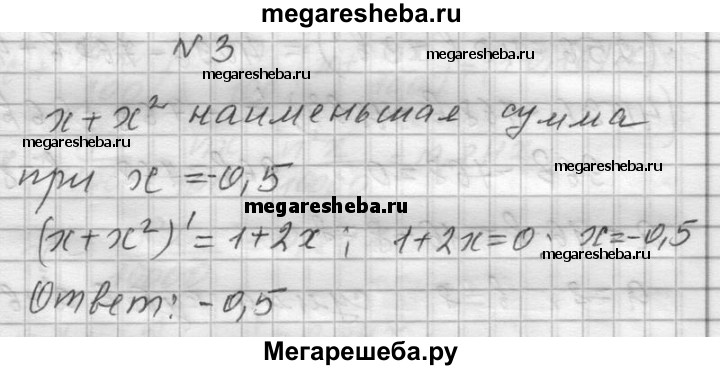 megaresheba.ru
№ 3
megaresheba.ru
megaresheba.ru
x + x² наименьшая сумма
megaresheba.ru
megaresheba.ru
при x = -0,5
megaresheba.ru
(x + x²)' = 1 + 2x ; 1 + 2x = 0; x = -0,5
megaresheba.ru
megaresheba.ru
Ответ: -0,5
Мегарешеба.ру